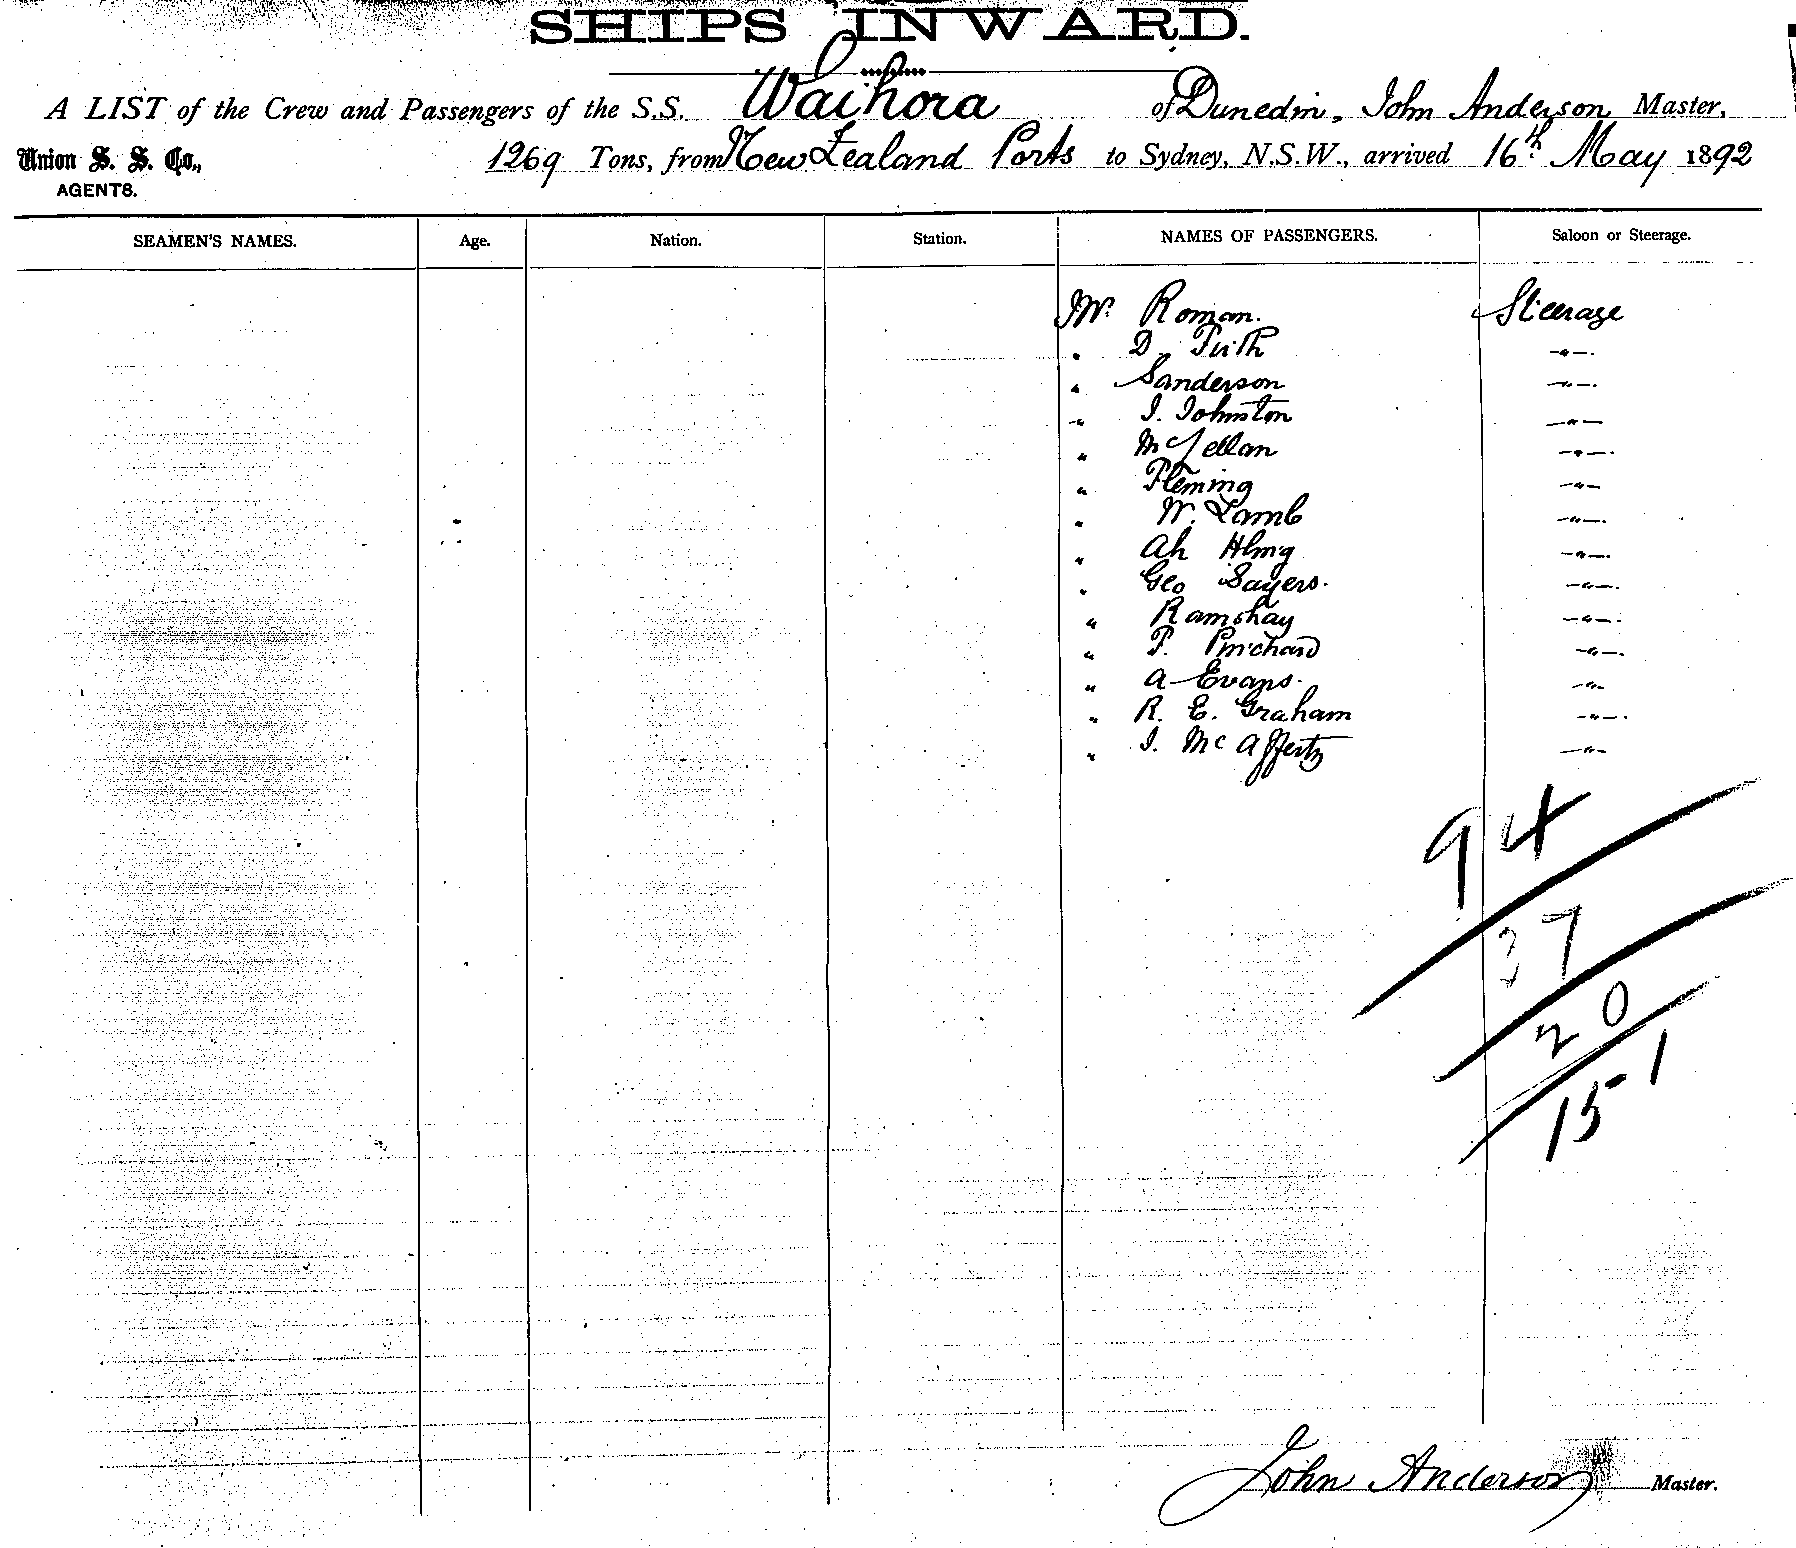 SHIPS INWARD.
A LIST of the Crew and Passengers of the S.S. Waihora of Dunedin, John Anderson Master,
Union S. S. Co., 1269 Tons, from New Zealand Ports to Sydney, N.S.W., arrived 16th May 1892
AGENTS.
SEAMEN'S NAMES. Age. Nation. Station. NAMES OF PASSENGERS. Saloon or Steerage.
Mr. Roman. Steerage
" D. Firth —"—
" Sanderson —"—
" J. Johnston —"—
" —"—
" Fleming —"—
" W. Lamb —"—
" Ah —"—
" Geo Sayers. —"—
" Ramshay —"—
" P. —"—
" A Evans. —"—
" R. E. Graham —"—
" J. McAfferty —"—
94
37
20
151
John Anderson Master.